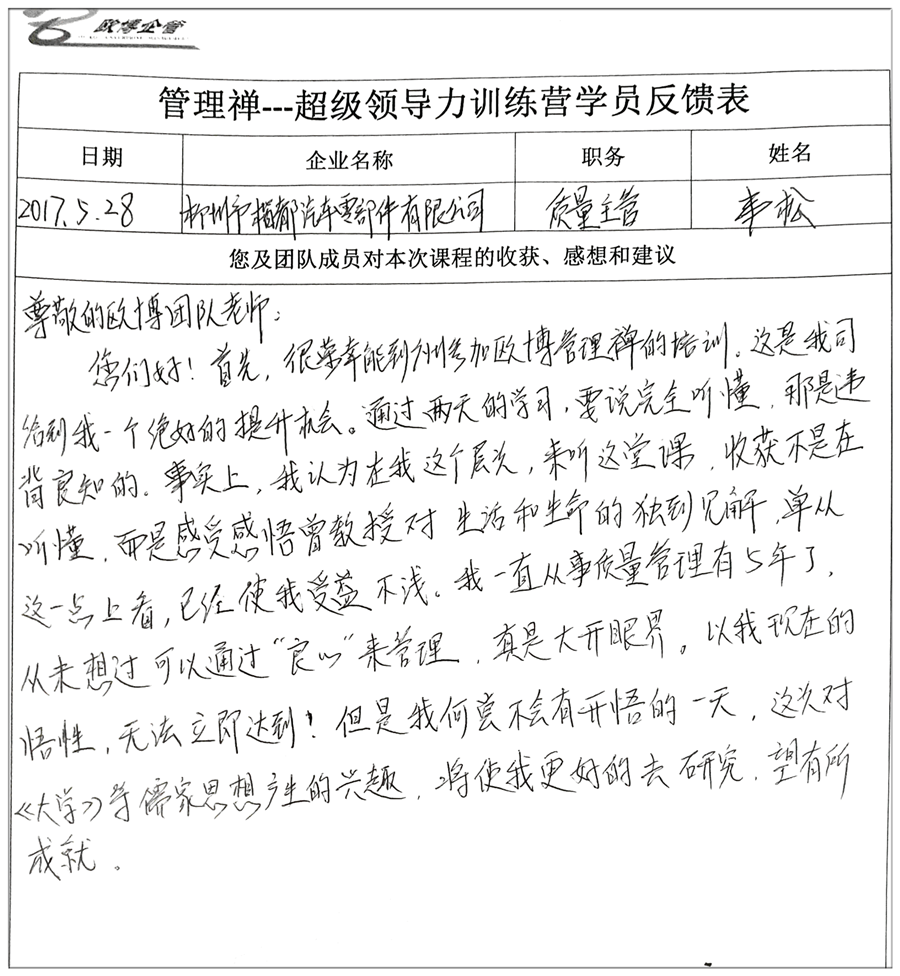 欧博企管
管理禅---超级领导力训练营学员反馈表
日期 企业名称 职务 姓名
2017.5.28 柳州市楷都汽车零部件有限公司 质量主管 韦松
您及团队成员对本次课程的收获、感想和建议
尊敬的欧博团队老师:
您们好！首先，很荣幸能到广州参加欧博管理禅的培训。这是我司
给到我一个绝好的提升机会。通过两天的学习，要说完全听懂，那是违
背良知的。事实上，我认为在我这个层次，来听这堂课，收获不是在
听懂，而是感受感悟曾教授对生活和生命的独到见解，单从
这一点上看，已经使我受益不浅。我一直从事质量管理有5年了，
从未想过可以通过“良心”来管理，真是大开眼界。以我现在的
悟性，无法立即达到！但是我何尝不会有开悟的一天，这次对
《大学》等儒家思想产生的兴趣，将使我更好的去研究，望有所
成就。